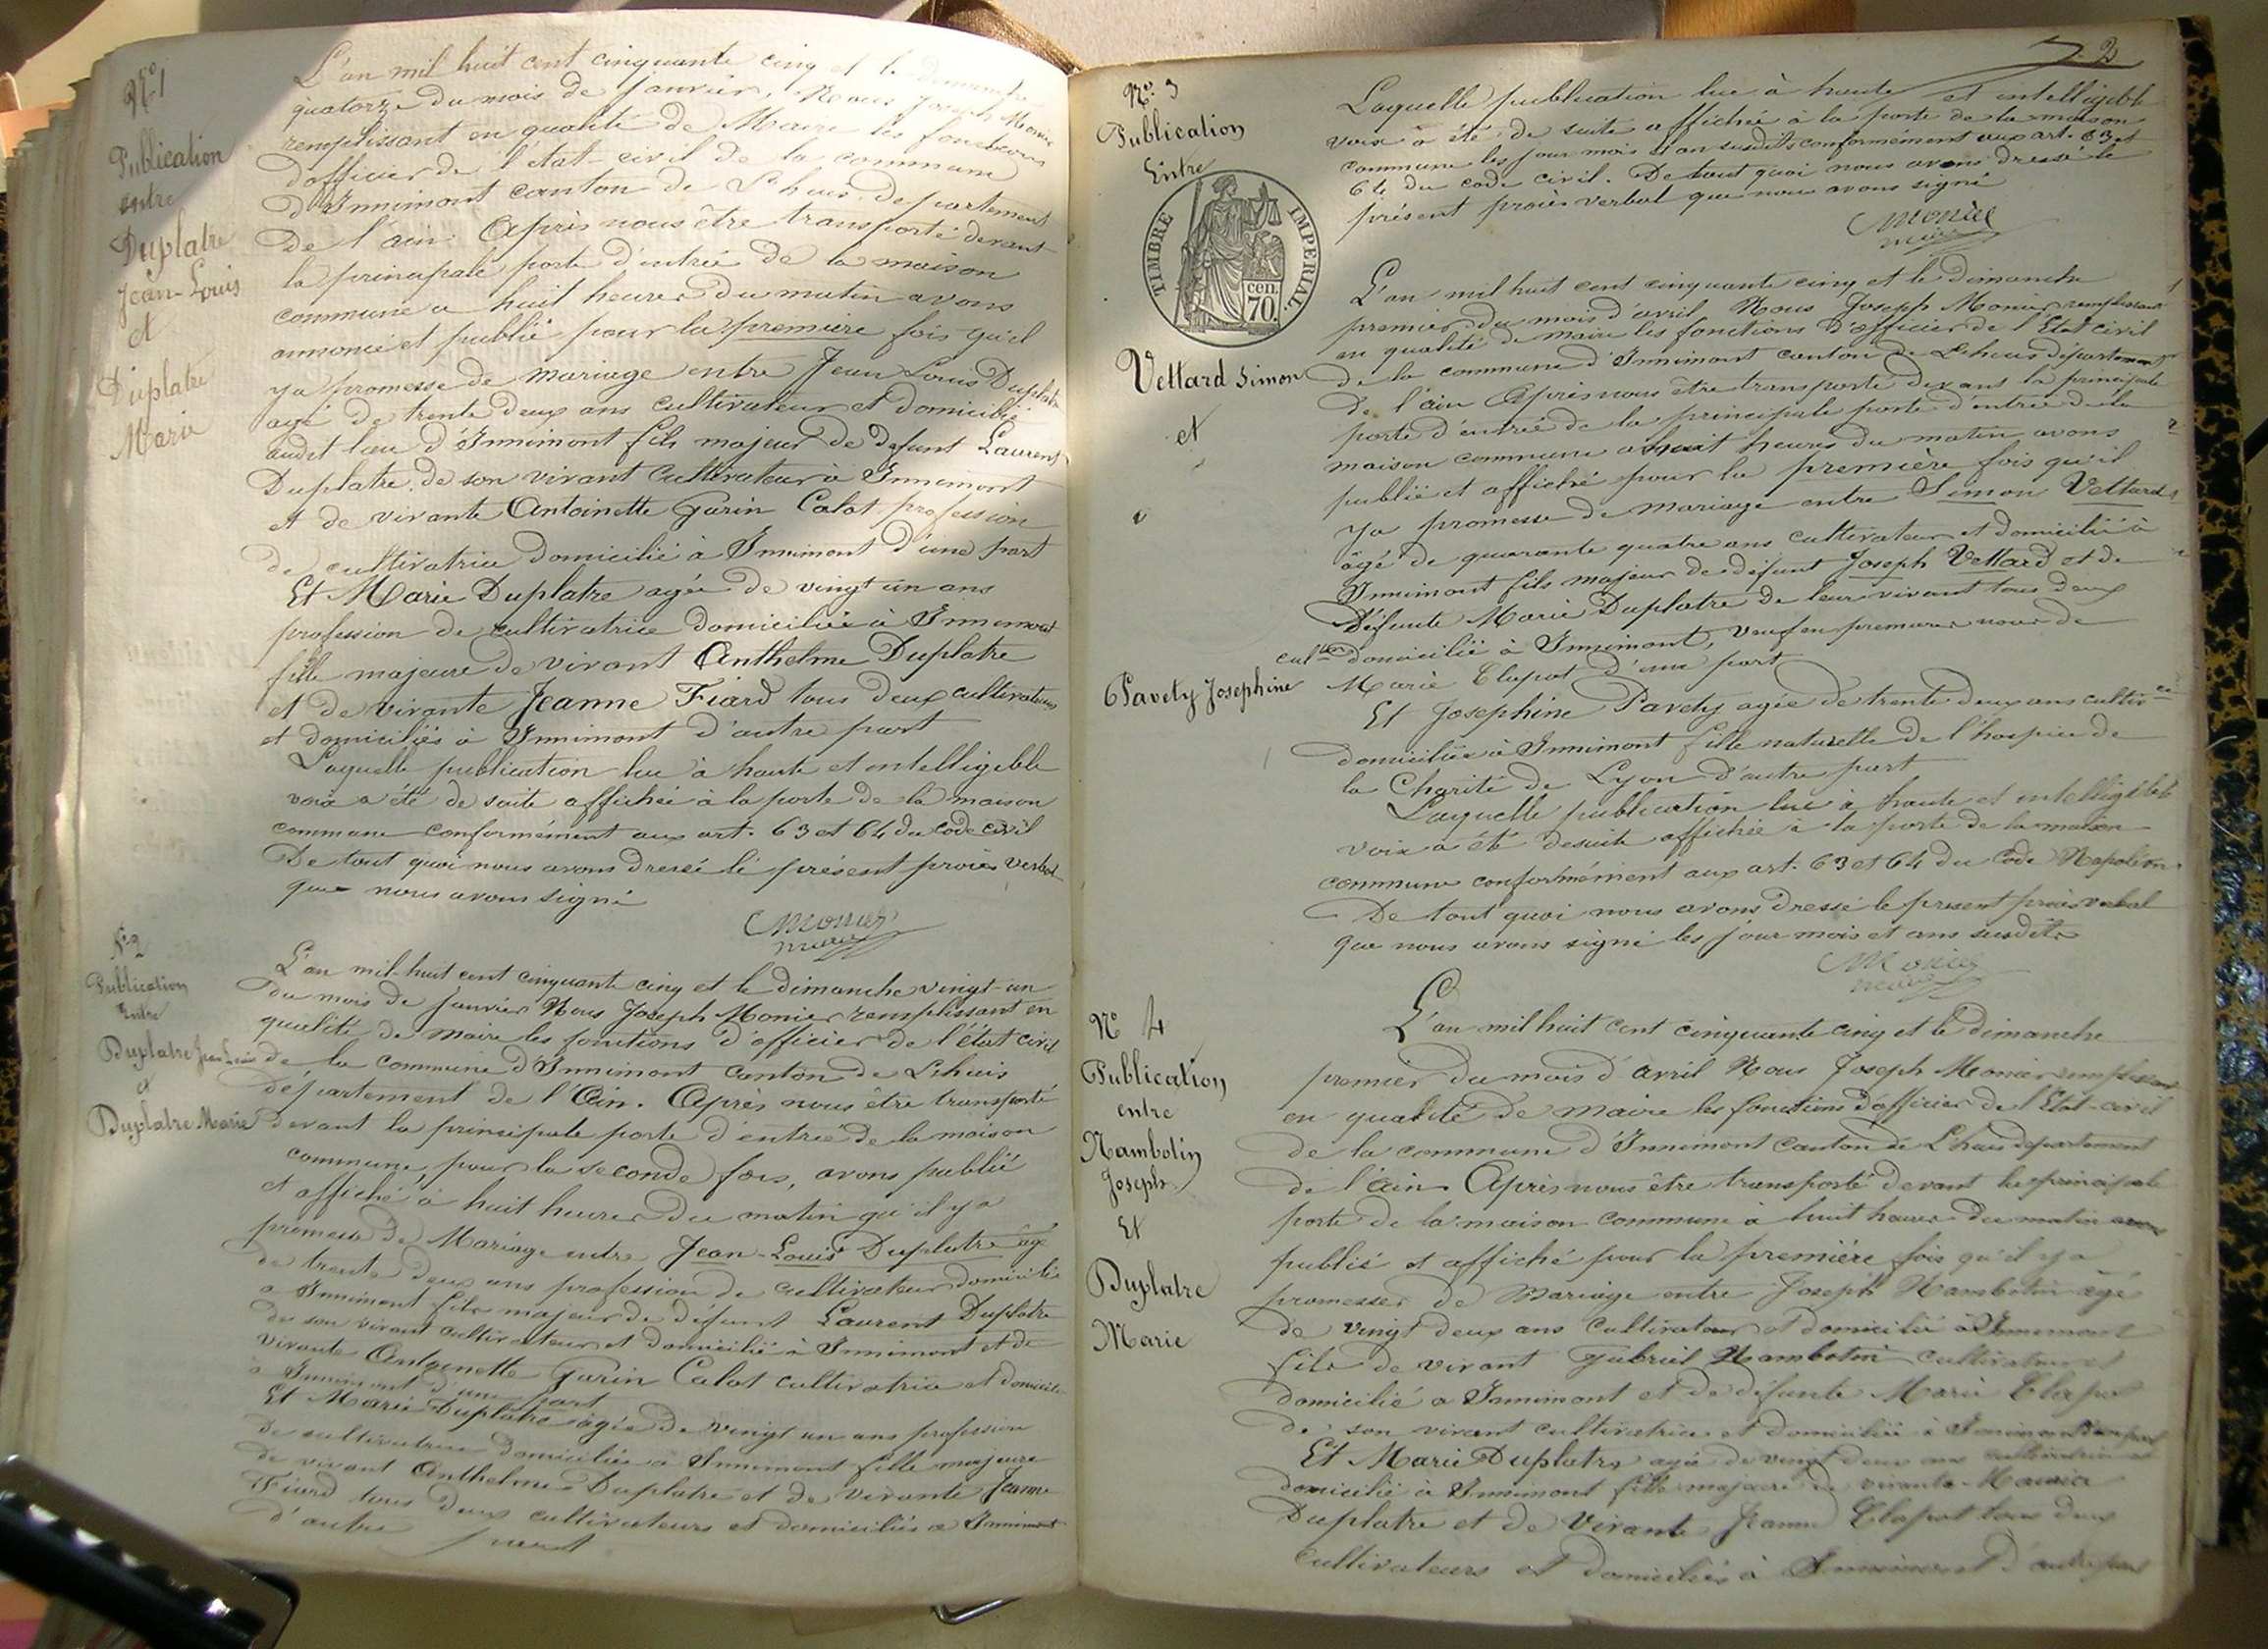 Nº 1
Publication
entre
Duplatre
Jean-Louis
et
Duplatre
Marie
L'an mil huit cent cinquante cinq et le dimanche
quatorze du mois de Janvier, Nous Joseph Monier
remplissant en qualité de Maire les fonctions
d'officier de l'état-civil de la commune
d'Innimont canton de Lhuis, departement
de l'ain. Après nous être transporté devant
la principale porte d'entrée de la maison
commune a huit heures du matin avons
annoncé et publié pour la première fois qu'il
ya promesse de mariage entre Jean Louis Duplatre
agé de trente deux ans cultivateur et domicilié
audit lieu d'Innimont fils majeur de defunt Laurent
Duplatre, de son vivant cultivateur à Innimont
et de vivante Antoinette Garin Calot profession
de cultivatrice domicilié à Innimont d'une part
Et Marie Duplatre agée de vingt un ans
profession de cultivatrice domiciliée à Innimont
fille majeure de vivant Anthelme Duplatre
et de vivante Jeanne Fiard tous deux cultivateurs
et domiciliés à Innimont d'autre part
Laquelle publication lue à haute et intelligible
voix a été de suite affichée à la porte de la maison
commune conformément aux art. 63 et 64 du Code civil
De tout quoi nous avons dressé le présent procès verbal
que nous avons signé
Monier
maire
Nº 2
Publication
Entre
Duplatre Jean Louis
et
Duplatre Marie
L'an mil-huit cent cinquante cinq et le dimanche vingt-un
du mois de Janvier Nous Joseph Monier remplissant en
qualité de maire les fonctions d'officier de l'état civil
de la commune d'Innimont canton de Lhuis
département de l'Ain. Après nous être transporté
devant la principale porte d'entrée de la maison
commune, pour la seconde fois, avons publié
et affiché à huit heures du matin qu'il y a
promesse de Mariage entre Jean-Louis Duplatre agé
de trente deux ans profession de cultivateur domicilié
a Innimont fils majeur de défunt Laurent Duplatre
de son vivant cultivateur et domicilié à Innimont et de
vivante Antoinette Garin Calot cultivatrice et domiciliée
à Innimont d'une part
Et Marie Duplatre agée de vingt un ans profession
de cultivatrice domiciliée à Innimont fille majeure
de vivant Anthelme Duplatre et de vivante Jeanne
Fiard tous deux cultivateurs et domiciliés a Innimont
d'autre part
2
Nº 3
Publication
Entre
TIMBRE IMPERIAL
cen.
70.
Vettard Simon
et
Pavety Josephine
Laquelle publication lue à haute et intelligible
voix a été de suite affichée à la porte de la maison
commune les jour mois et an susdits conformément aux art. 63 et
64 du code civil. De tout quoi nous avons dressé le
présent procès verbal que nous avons signé
Monier
maire
L'an mil huit cent cinquante cinq et le dimanche
premier du mois d'avril Nous Joseph Monier remplissant
en qualité de maire les fonctions d'officier de l'Etat civil
de la commune d'Innimont canton de Lhuis département
de l'ain Après nous être transporté devant la principale
porte d'entrée de la principale porte d'entrée de la
maison commune a huit heures du matin avons
publié et affiché pour la première fois qu'il
ya promesse de mariage entre Simon Vettard
âgé de quarante quatre ans cultivateur et domicilié à
Innimont fils majeur de défunt Joseph Vettard et de
Défunte Marie Duplatre de leur vivant tous deux
cult.rs domicilié à Innimont, veuf en premieres noces de
Marie Clapot d'une part
Et Josephine Pavety agée de trente deux ans cultiv.ce
domiciliée à Innimont fille naturelle de l'hospice de
la Charité de Lyon d'autre part
Laquelle publication lue à haute et intelligible
voix a été desuite affichée à la porte de la maison
commune conformément aux art. 63 et 64 du Code Napoléon
De tout quoi nous avons dressé le présent procès verbal
que nous avons signé les jour mois et ans susdits
Monier
maire
Nº 4
Publication
entre
Nambotin
Joseph
Et
Duplatre
Marie
L'an mil huit cent cinquante cinq et le dimanche
premier du mois d'avril Nous Joseph Monier remplissant
en qualité de maire les fonctions d'officier de l'Etat-civil
de la commune d'Innimont Canton de Lhuis departement
de l'ain Après nous être transporté devant la principale
porte de la maison commune à huit heures du matin avons
publié et affiché pour la première fois qu'il y a
promesse de Mariage entre Joseph Nambotin agé
de vingt deux ans Cultivateur et domicilié à Innimont
fils de vivant Gabriel Nambotin cultivateur et
domicilié a Innimont et de défunte Marie Clapot
de son vivant cultivatrice et domiciliée à Innimont d'une part
Et Marie Duplatre agée de vingt deux ans cultivatrice
domicilié à Innimont fille majeure de vivante
Duplatre et de Vivante Jeanne Clapot tous deux
Cultivateurs et domiciliés à Innimont d'autre part